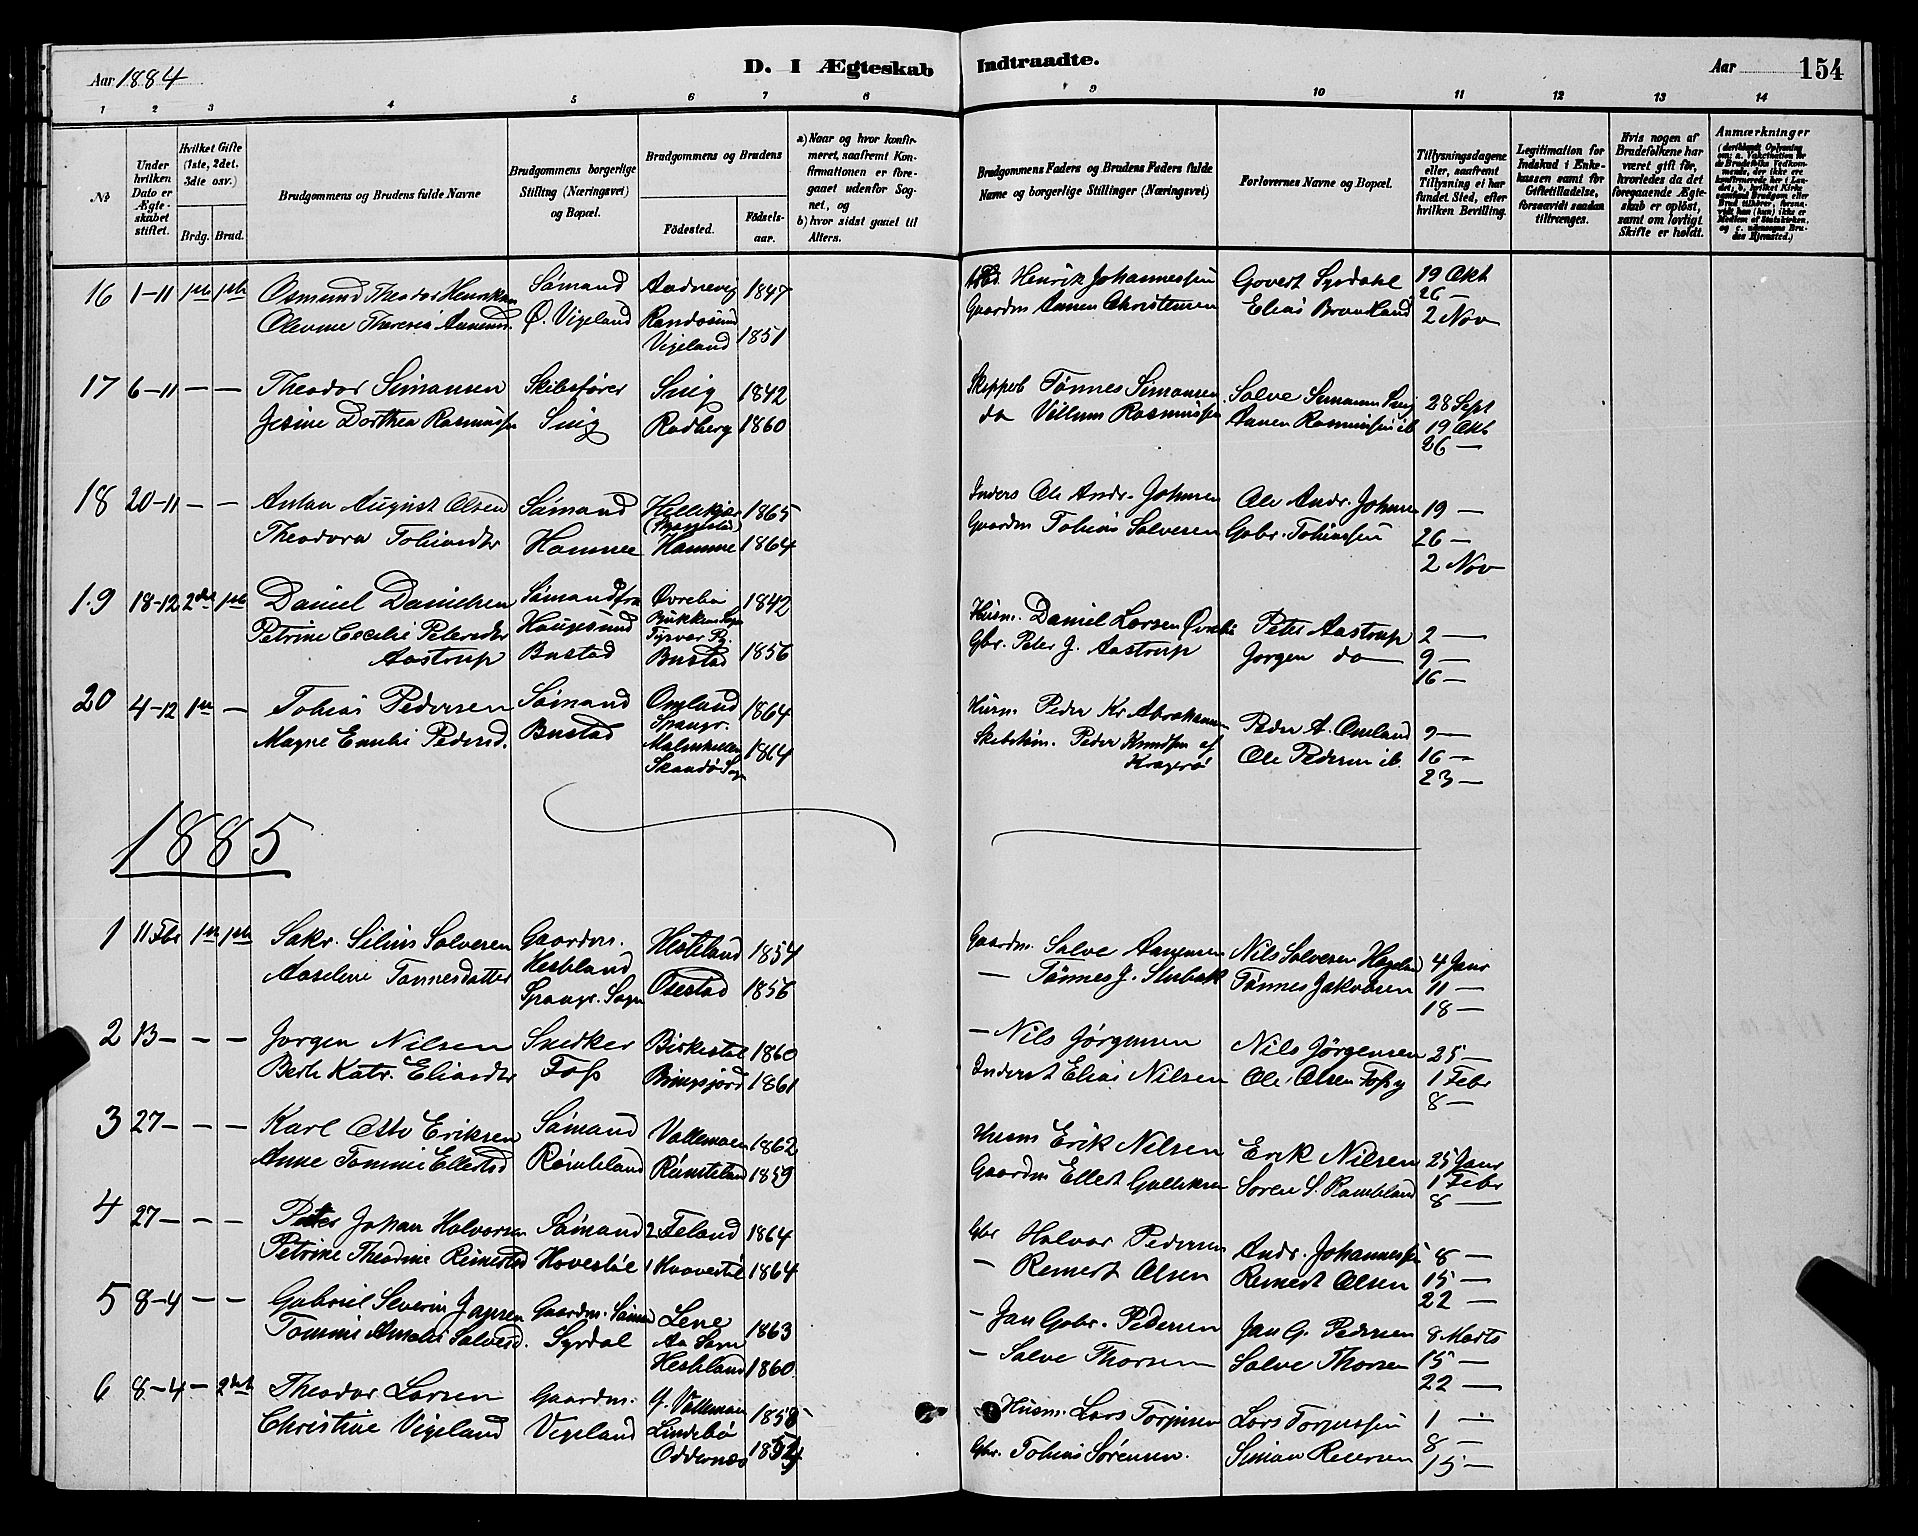 Aar 1884
D. I Ægteskab Indtraadte.
Aar
154
1 2 3 4 5 6 7 8 9 10 11 12 13 14
№
Under hvilken Dato er Ægteskabet stiftet.
Hvilket Gifte (1ste, 2det, 3die osv.)
Brdg. Brud.
Brudgommens og Brudens fulde Navne
Brudgommens borgerlige Stilling (Næringsvei) og Bopæl.
Brudgommens og Brudens
Födested. Födselsaar.
a) Naar og hvor konfirmeret, saafremt Konfirmationen er foregaaet udenfor Sognet, og
b) hvor sidst gaaet til Alters.
Brudgommens Faders og Brudens Faders fulde Navne og borgerlige Stillinger (Næringsvei)
Forlovernes Navne og Bopæl.
Tillysningsdagene eller, saafremt Tillysning ei har fundet Sted, efter hvilken Bevilling.
Legitimation for Indskud i Enkekassen samt for Giftetilladelse, forsaavidt saadan tiltrænges.
Hvis nogen af Brudefolkene har været gift för, hvorledes da det foregaaende Ægteskab er oplöst, samt om lovligt Skifte er holdt.
Anmærkninger
16 1-11 1ste 1ste Osmund Theodor Henriksen Sømand Aadnevig 1847 Henrik Johannessen Govert Syrdahl 19 Okt
Olevine Theresia Aanens. Ø. Vigeland Randøsund Gaardm Aanen Christensen Elias Brandland 26 —
Vigeland 1851 2 Nov
17 6-11 — — Theodor Simonsen Skibsfører Smig 1842 Skipperb Tønnes Simonsen Salve Simonsen 28 Sept
Jesine Dorthea Rasmussen Smig Rødberg 1860 do Villum Rasmussen Aanen Rasmussen ib 19 Okt
26 —
18 20-11 — — Anton August Olsen Sømand 1865 Inders Ole Andr. Johnsen Ole Andr. Johnsen 19 —
Theodora Tobiasdtr Hamne Hamne 1864 Gaardm Tobias Salvesen Gabr. Tobiassen 26 —
2 Nov
19 18-12 2det 1ste Daniel Danielsen Sømand fra Øvrebø 1842 Husm. Daniel Larsen Peter Aastrup 2 —
Petrine Cecilie Petersdtr Haugesund Tysvær Pg. Gbr. Peter J. Aastrup Jørgen do 9 —
Aastrup Bustad Bustad 1856 16 —
20 4-12 1ste — Tobias Pedersen Sømand Omland 1864 Husm. Peder Kr Abrahamsen Peder A. Omland 9 —
Magne Emilie Pedersd. Bustad Spangr. Peder Knudsen af Ole Pedersen ib 16 —
1864 Kragerø 23 —
Skaadø Sogn
1885
1 11 Febr 1ste 1ste Sakr. Silius Salvesen Gaardm. Hesteland 1854 Gaardm. Salve Aanensen Nils Salvesen Hageland 4 Janr
Aaseline Tønnesdatter Hesteland Ösestad 1856 — Tönnes J. Stubak Tönnes Jakobsen 11 —
Spangr. Sogn 18 —
2 13 — — — Jørgen Nilsen Snedker Birkestøl 1860 — Nils Jørgensen Nils Jörgensen 25 —
Berte Katr. Eliasdtr Foss 1861 Inderst Elias Nilsen Ole Olsen 1 Febr
8 —
3 27 — — — Karl Otto Eriksen Sømand Vallemoen 1862 Husm Erik Nilsen Erik Nilsen 25 Janr
Anne Tomine Ellertsd 1859 Gaardm Ellert Gulliksen Søren S. 1 Febr
8 —
4 27 — — — Peter Johan Halvorsen Sømand 2 Feland 1864 Gbr Halvor Pedersen Andr. Johannessen 8 —
Petrine Theodine Reinertsd Hovestøl 1 1864 — Reinert Olsen Reinert Olsen 15 —
22 —
5 8-4 — — Gabriel Severin Jansen Gaardm. Lene 1863 — Jan Gabr. Pedersen Jan G. Pedersen 8 Marts
Tomine Amalie Salvesd. Syrdal Aa Sogn — Salve Thorsen Salve Thorsen 15 —
Hesteland 1860 22 —
6 8-4 — 2det Theodor Larsen Gaardm. Vallemoen 1858 Husm. Lars Torjusen Lars Torjussen 1 —
Christine Vigeland Vigeland Lindebø 8 —
Oddernes Gbr. Tobias Sørensen. Simon Reiersen 15 —